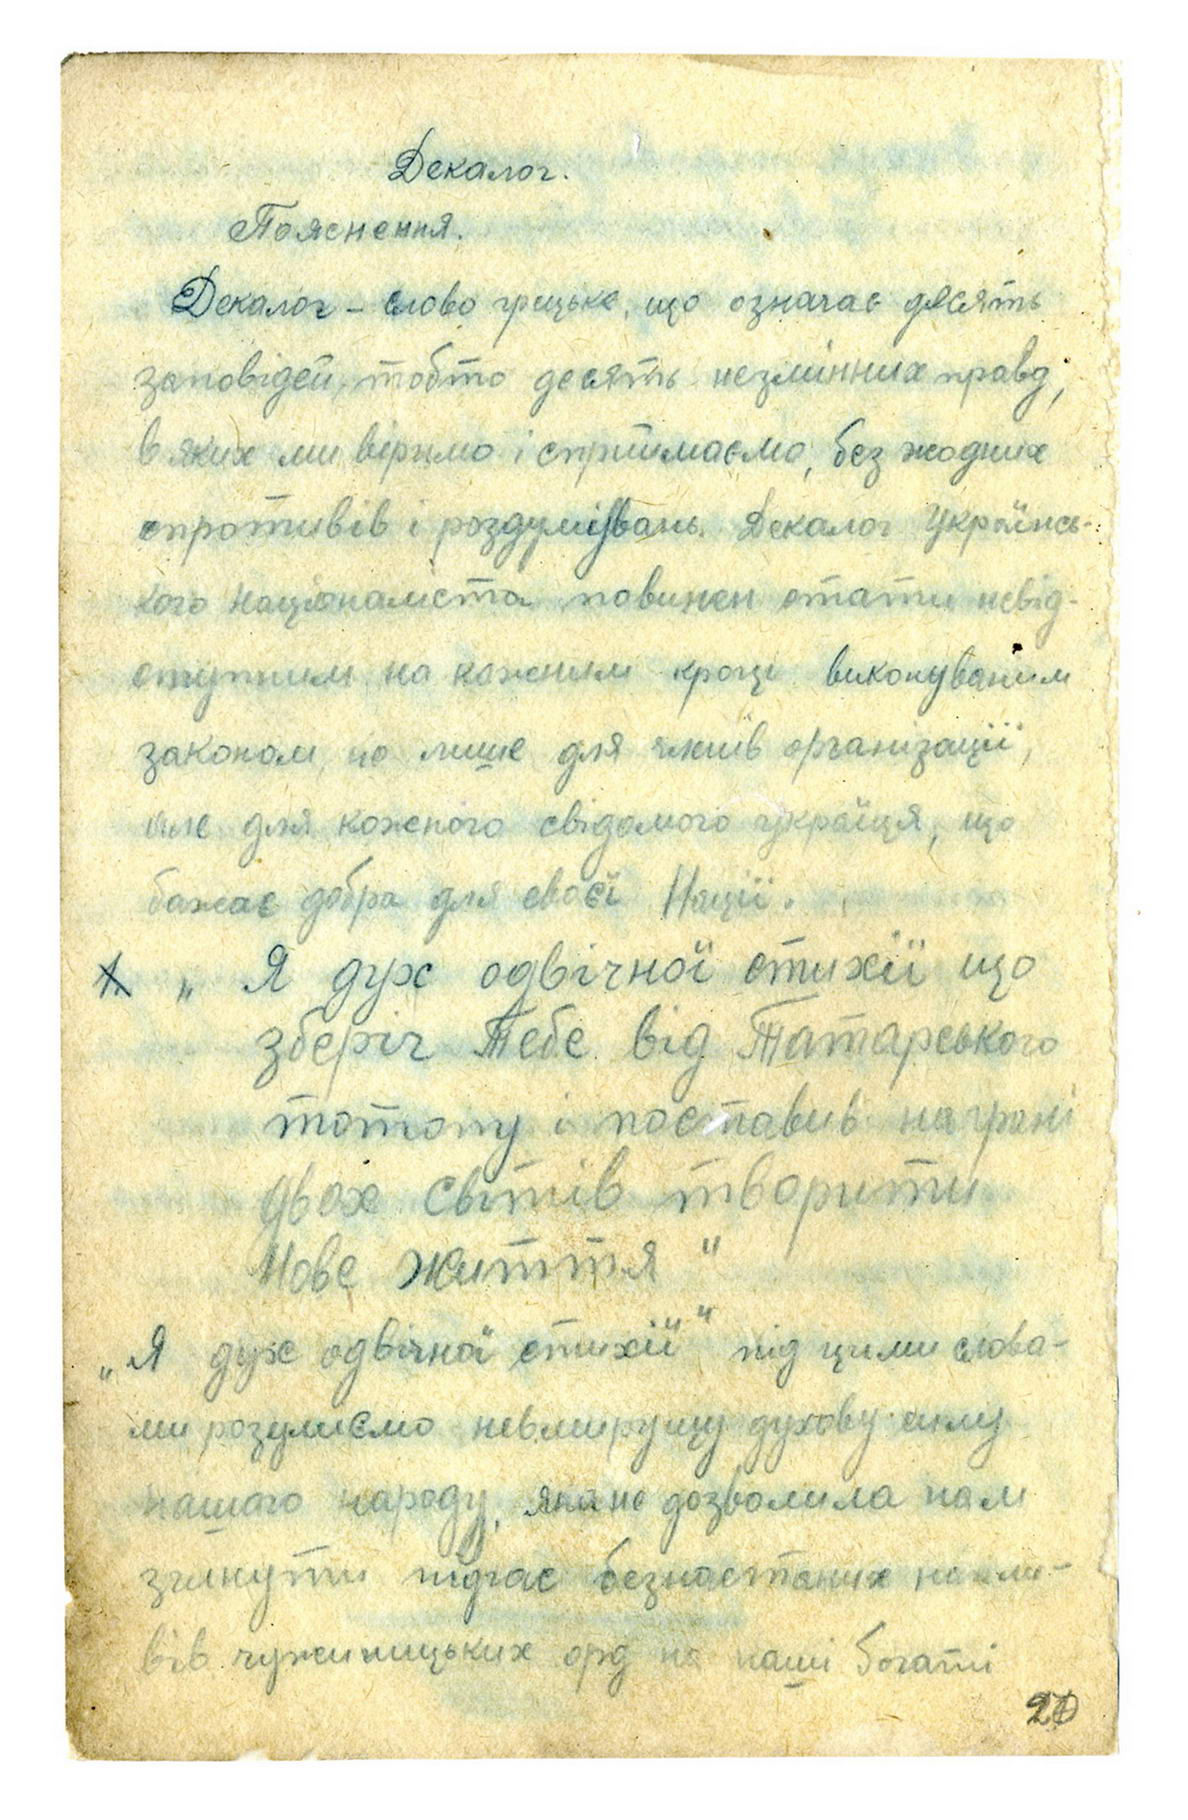 Декалог.
Пояснення.
Декалог – слово грецьке, що означає десять
заповідей, тобто десять незмінних правд,
в яких ми віримо і сприймаємо, без жодних
спротивів і роздумувань. Декалог Українсь-
кого Націоналіста повинен стати невід-
ступним на кожнім кроці виконуваним
законом, не лише для членів організації,
але для кожного свідомого українця, що
бажає добра для своєї Нації.
1. „ Я дух одвічної стихії що
зберіг Тебе від Татарського
потопу і поставив на грані
двох світів творити
Нове життя "
„Я дух одвічної стихії" під цими слова-
ми розуміємо невмирущу духову силу
нашого народу, яка не дозволила нам
згинути підчас безнастаних напли-
вів чужинницьких орд на наші богаті
20